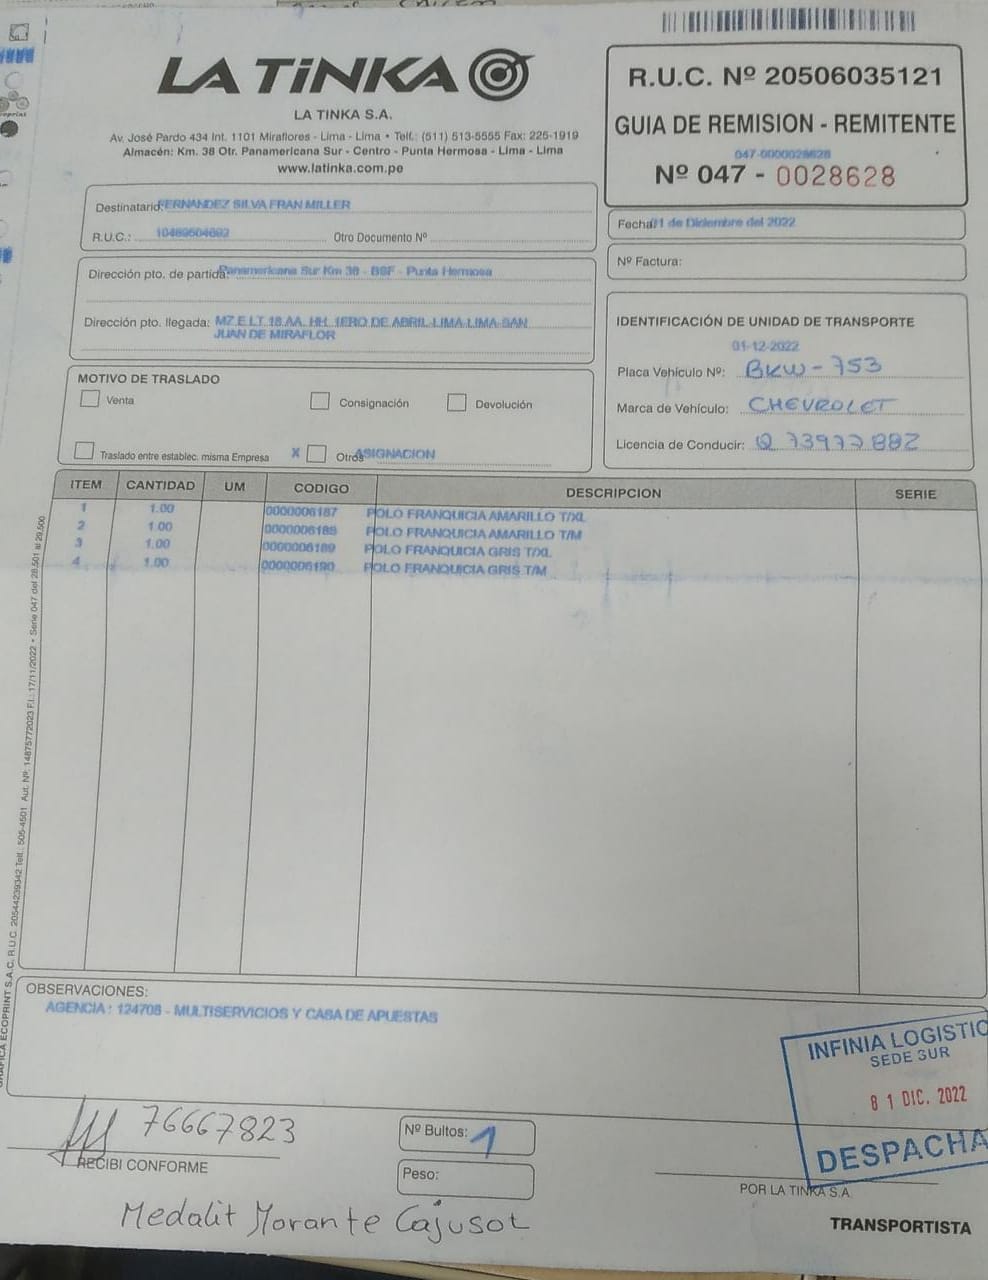 LA TiNKA
LA TINKA S.A.
Av. José Pardo 434 Int. 1101 Miraflores - Lima - Lima • Telf.: (511) 513-5555 Fax: 225-1919
Almacén: Km. 38 Otr. Panamericana Sur - Centro - Punta Hermosa - Lima - Lima
www.latinka.com.pe
R.U.C. Nº 20506035121
GUIA DE REMISION - REMITENTE
047-0000028628
Nº 047 - 0028628
Destinatario: FERNANDEZ SILVA FRAN MILLER
R.U.C.: 10469504692 Otro Documento Nº
Fecha: 01 de Diciembre del 2022
Nº Factura:
Dirección pto. de partida: Panamericana Sur Km 38 - BSF - Punta Hermosa
Dirección pto. llegada: MZ.E LT.18 AA. HH. 1ERO DE ABRIL-LIMA-LIMA-SAN
JUAN DE MIRAFLOR
IDENTIFICACIÓN DE UNIDAD DE TRANSPORTE
01-12-2022
Placa Vehículo Nº: BKW-753
Marca de Vehículo: CHEVROLET
Licencia de Conducir: Q 73977882
MOTIVO DE TRASLADO
Venta Consignación Devolución
Traslado entre establec. misma Empresa X Otros ASIGNACION
ITEM CANTIDAD UM CODIGO DESCRIPCION SERIE
1 1.00 0000006187 POLO FRANQUICIA AMARILLO T/XL
2 1.00 0000006188 POLO FRANQUICIA AMARILLO T/M
3 1.00 0000006189 POLO FRANQUICIA GRIS T/XL
4 1.00 0000006190 POLO FRANQUICIA GRIS T/M
GRAFICA ECOPRINT S.A.C. R.U.C. 20544239342 Telf.: 505-4501 Aut. Nº: 14875772023 F.I.: 17/11/2022 • Serie 047 del 28,501 al 29,500
OBSERVACIONES:
AGENCIA : 124708 - MULTISERVICIOS Y CASA DE APUESTAS
INFINIA LOGISTIC
SEDE SUR
01 DIC. 2022
DESPACHA
76667823
RECIBI CONFORME
Nº Bultos: 1
Peso:
POR LA TINKA S.A.
Medalit Morante Cajusot
TRANSPORTISTA